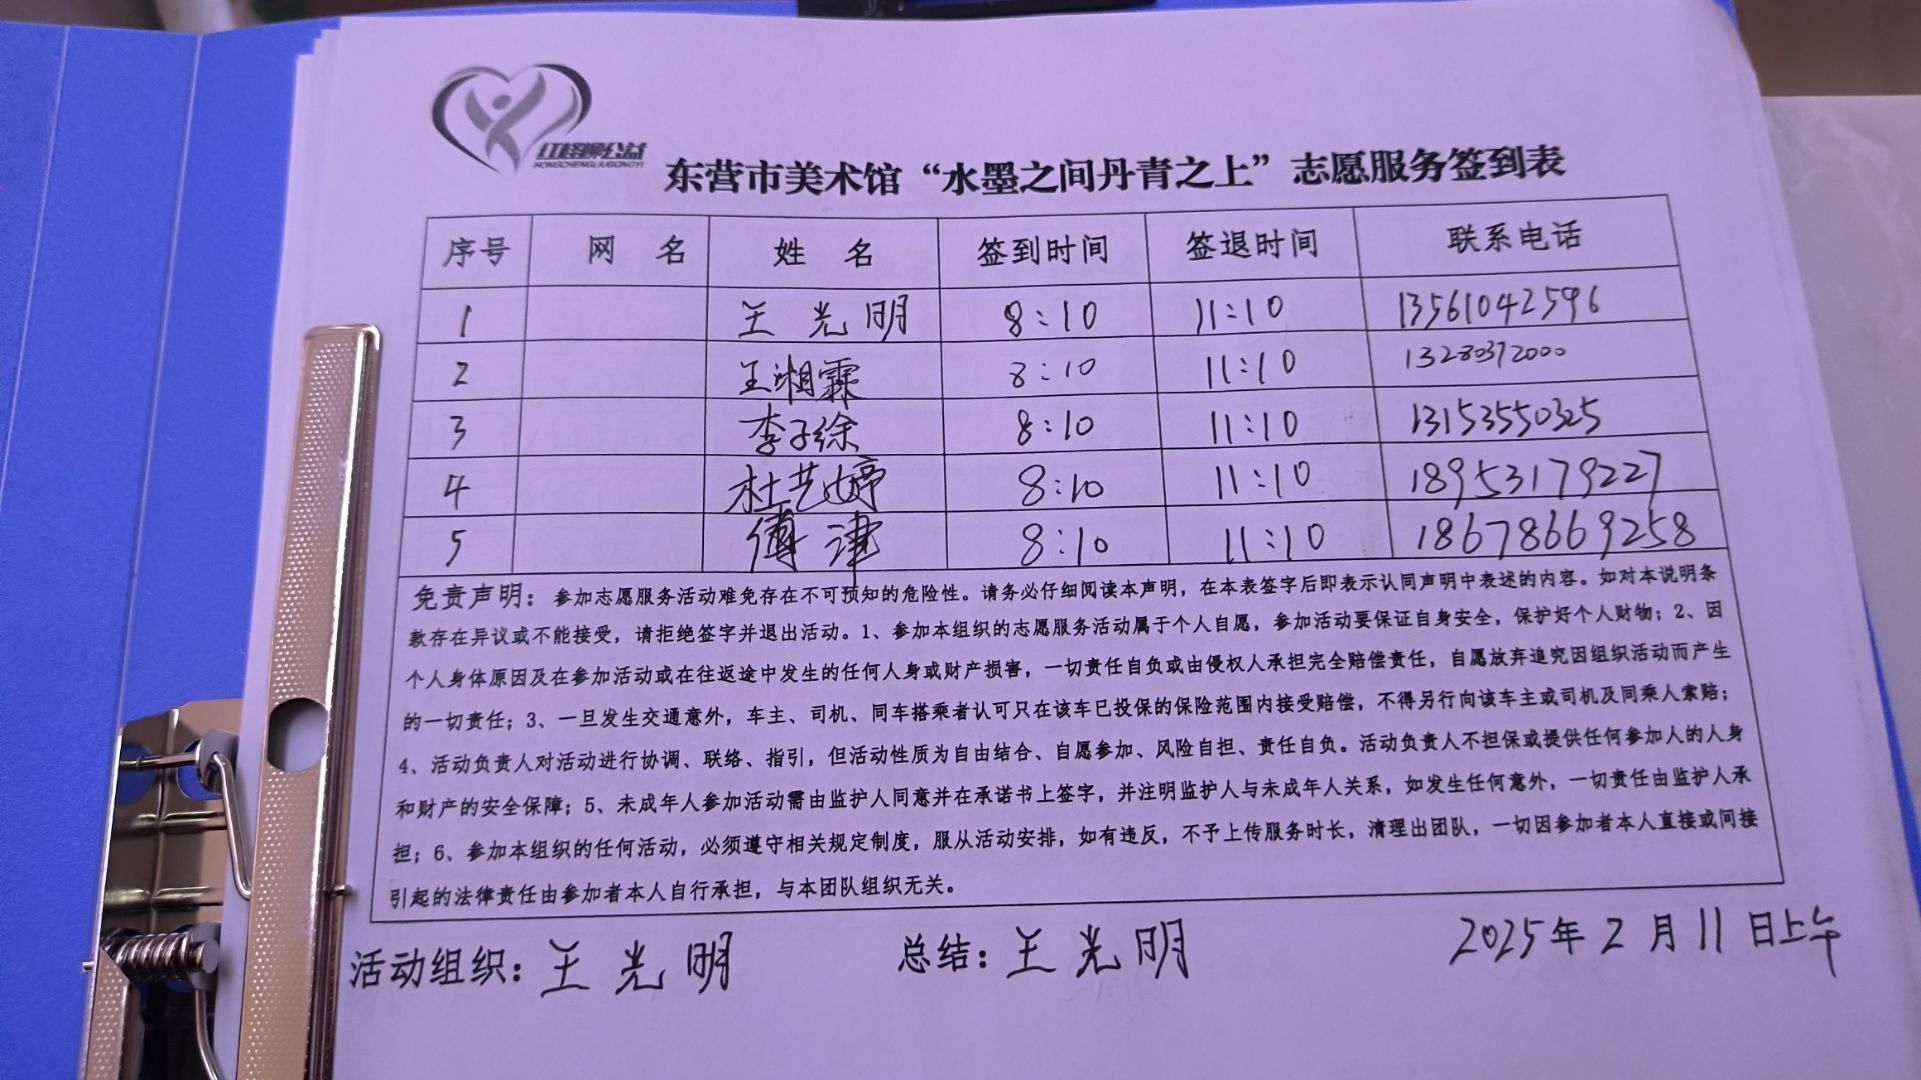 红柽柳公益
HONGCHENGLIUGONGYI
东营市美术馆“水墨之间丹青之上”志愿服务签到表
序号 网 名 姓 名 签到时间 签退时间 联系电话
1 王光明 8:10 11:10 13561042596
2 王湘霖 8:10 11:10 13280372000
3 李子徐 8:10 11:10 13153550325
4 杜艺婷 8:10 11:10 18953179227
5 傅津 8:10 11:10 18678669258
免责声明：参加志愿服务活动难免存在不可预知的危险性。请务必仔细阅读本声明，在本表签字后即表示认同声明中表述的内容。如对本说明条
款存在异议或不能接受，请拒绝签字并退出活动。1、参加本组织的志愿服务活动属于个人自愿，参加活动要保证自身安全，保护好个人财物；2、因
个人身体原因及在参加活动或在往返途中发生的任何人身或财产损害，一切责任自负或由侵权人承担完全赔偿责任，自愿放弃追究因组织活动而产生
的一切责任；3、一旦发生交通意外，车主、司机、同车搭乘者认可只在该车已投保的保险范围内接受赔偿，不得另行向该车主或司机及同乘人索赔；
4、活动负责人对活动进行协调、联络、指引，但活动性质为自由结合、自愿参加、风险自担、责任自负。活动负责人不担保或提供任何参加人的人身
和财产的安全保障；5、未成年人参加活动需由监护人同意并在承诺书上签字，并注明监护人与未成年人关系，如发生任何意外，一切责任由监护人承
担；6、参加本组织的任何活动，必须遵守相关规定制度，服从活动安排，如有违反，不予上传服务时长，清理出团队，一切因参加者本人直接或间接
引起的法律责任由参加者本人自行承担，与本团队组织无关。
活动组织：王光明 总结：王光明 2025年2月11日上午